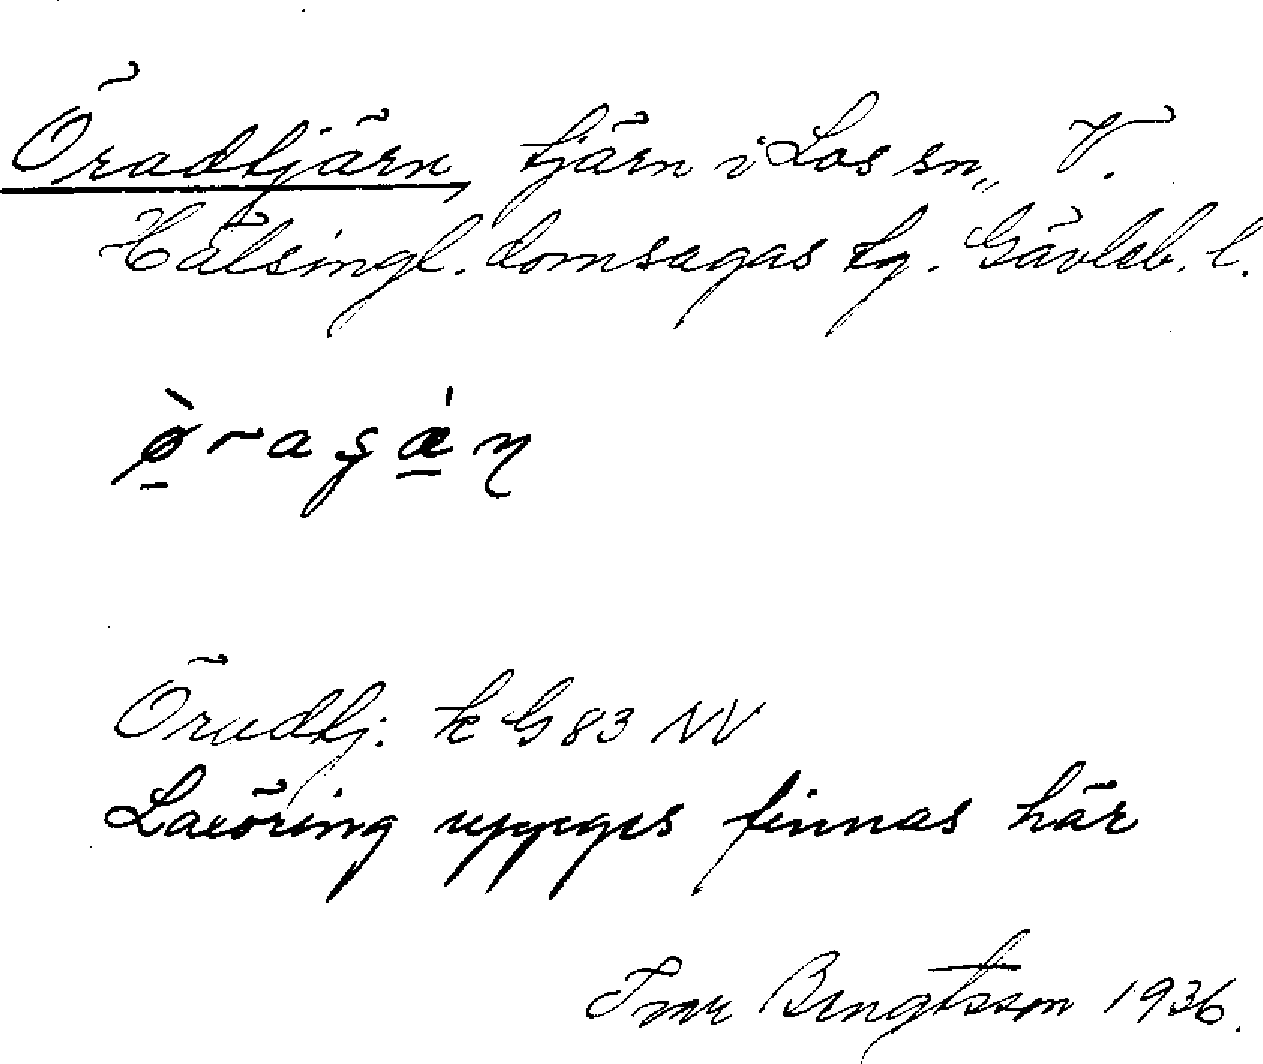 Öradtjärn, tjärn i Los sn,, V.
Hälsingl. domsagas tg. Gävleb. l.
Öradtj. k G 83 NV
Laxöring uppges finnas här
Ivar Bengtsson 1936.